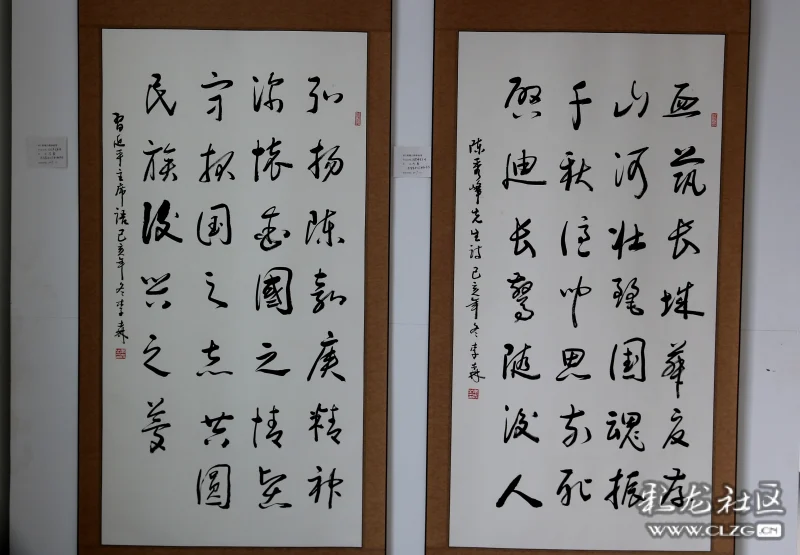 血筑长城华夏存
山河壮国魂振
千秋思前
启迪长随後人
陈秀峰先生诗 己亥年冬李森
弘扬陈嘉庚精神
深怀爱國之情坚
守报国之志共圆
民族复兴之梦
习近平主席语 己亥年冬李森
彩龙社区
WWW.CLZG.CN